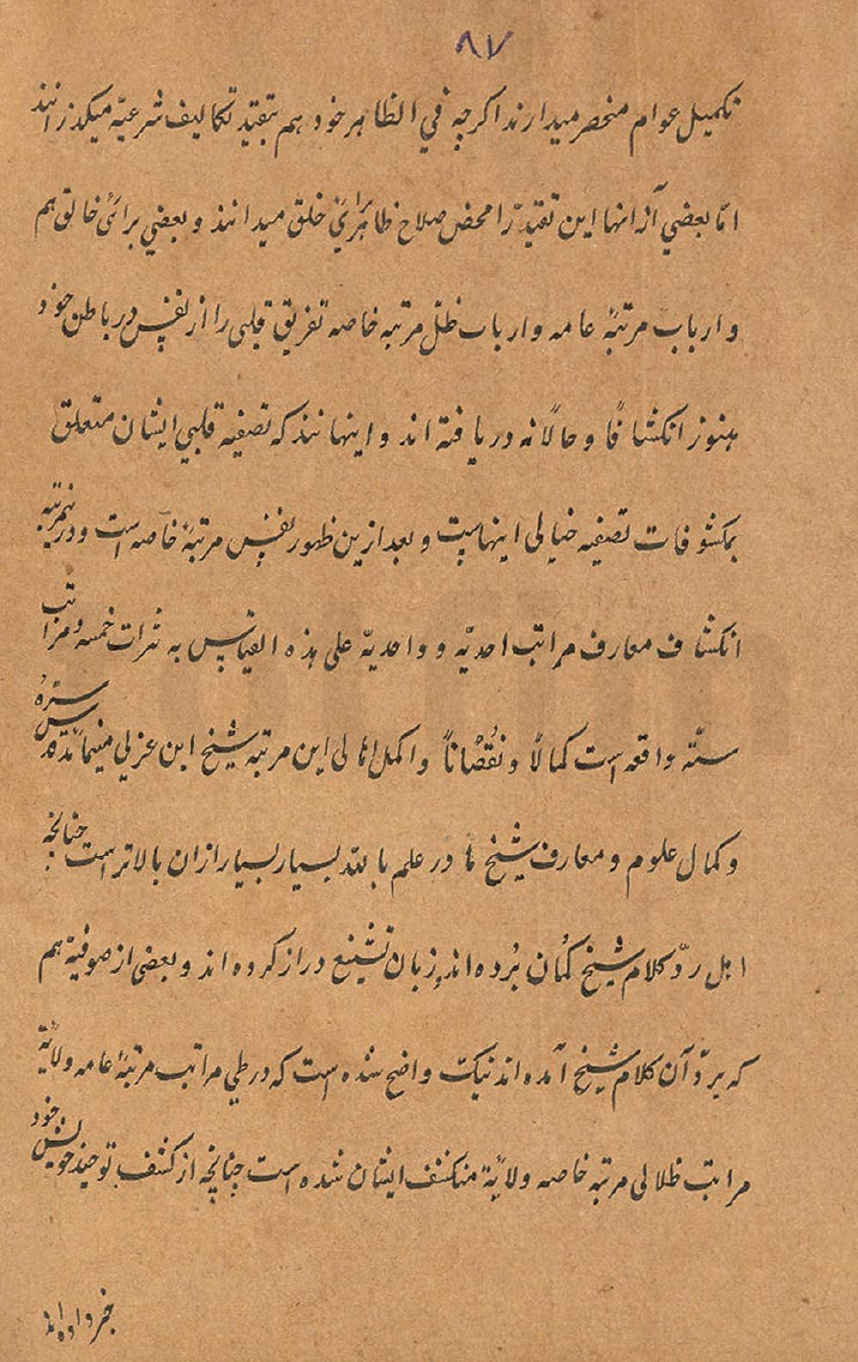 ۸۷
تکمیل عوام منحصر میدارند اکرچه في الظاهر خود هم بتقیّد تکالیف شرعیّه میکذرانند
امّا بعضي از انها این تقیّد را محض صلاح ظاهري برائ خلق میدانند و بعضي برائ خالق هم
و ارباب مرتبهٔ عامه و ارباب ظلّ مرتبه خاصه تفریق قلبی را از نفس در باطن خود
هنوز انکشافًا و حالًا نه دریافته اند و اینها نند که تصفیه قلبي ایشان متعلق
بمکشوفات تصفیه خیالی اینهاست و بعد ازین ظهور نفس مرتبهٔ خاصه است و درینمرتبه
انکشاف معارف مراتب احدیّه و واحدیّه علی هذه القیاس به نزرات خمسه و مراتب
ستّه واقعه است کمالًا و نُقصْاناً و اکمل اهالی این مرتبه شیخ ابن عربی مینماید قدس سرّهٗ
و کمال علوم و معارف شیخ ما در علم بالله بسیار بسیار ازان بالاتر است چنانچه
اهل ردّ کلام شیخ کُمان بُرده اند و زبان تشنیع دراز کرده اند و بعضی از صوفیّه هم
که بردّ آن کلام شیخ آمده اند نیک واضح شده است که در طي مراتب مرتبهٔ عامه ولایة
مراتب ظلالی مرتبه خاصه ولایة منکشف ایشان شده است چنانچه از کشف توحید خویش خود
خبر داده اند